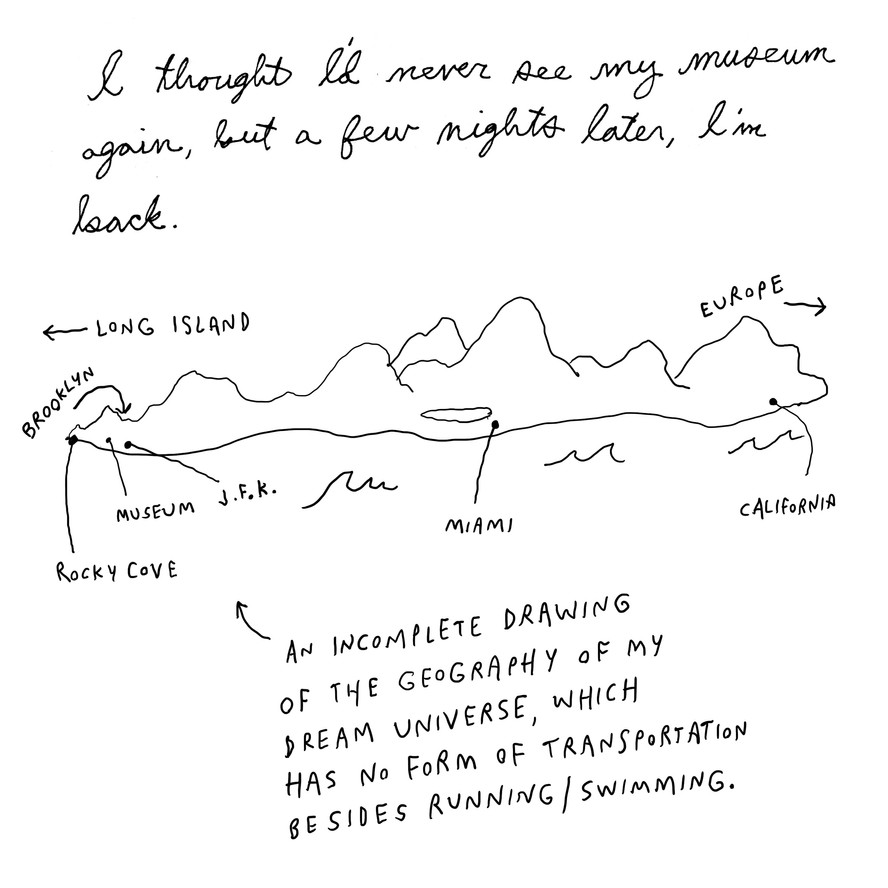 I thought I'd never see my museum
again, but a few nights later, I'm
back.
← LONG ISLAND
EUROPE →
BROOKLYN
MUSEUM
J.F.K.
MIAMI
CALIFORNIA
ROCKY COVE
AN INCOMPLETE DRAWING
OF THE GEOGRAPHY OF MY
DREAM UNIVERSE, WHICH
HAS NO FORM OF TRANSPORTATION
BESIDES RUNNING/SWIMMING.